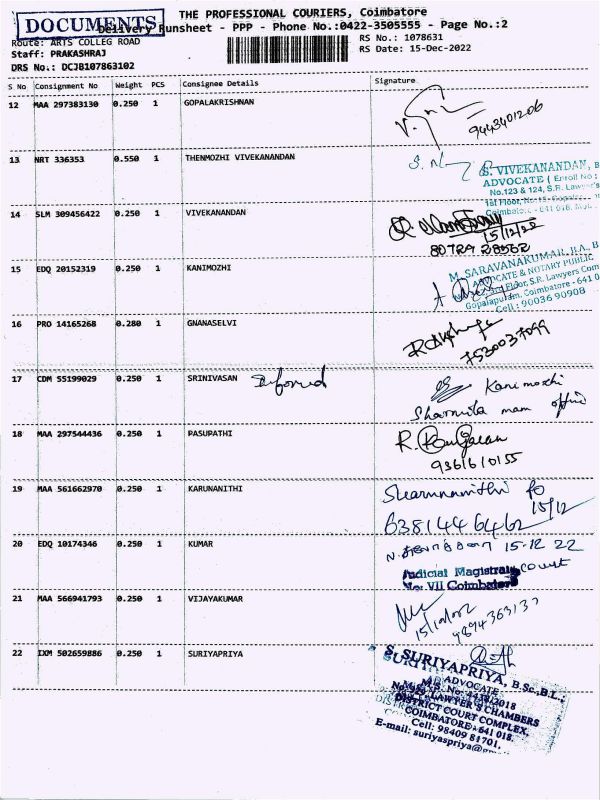 DOCUMENTS
THE PROFESSIONAL COURIERS, Coimbatore
Delivery Runsheet - PPP - Phone No.:0422-3505555 - Page No.:2
Route: ARTS COLLEG ROAD
RS No.: 1078631
Staff: PRAKASHRAJ
RS Date: 15-Dec-2022
DRS No.: DCJB107863102
S No Consignment No Weight PCS Consignee Details Signature
12 MAA 297383130 0.250 1 GOPALAKRISHNAN
9443401206
13 NRT 336353 0.550 1 THENMOZHI VIVEKANANDAN
S. VIVEKANANDAN, B
ADVOCATE ( Enroll No :
No.123 & 124, S.R. Lawyer's
1st Floor,
Coimbatore - 641 018.
14 SLM 309456422 0.250 1 VIVEKANANDAN
15/12/22
80729 28562
15 EDQ 20152319 0.250 1 KANIMOZHI
M. SARAVANAKUMAR, B.A., B
ADVOCATE & NOTARY PUBLIC
Floor, S.R. Lawyers Com
Gopalapuram, Coimbatore - 641 0
Cell : 90036 90908
16 PRO 14165268 0.280 1 GNANASELVI
7530037099
17 CDM 55199029 0.250 1 SRINIVASAN Informed
Kanimozhi
Sharmila mam office
18 MAA 297544436 0.250 1 PASUPATHI
9361610155
19 MAA 561662970 0.250 1 KARUNANITHI
15/12
6381446462
20 EDQ 10174346 0.250 1 KUMAR
15-12 22
Judicial Magistrate court
No. VII Coimbatore
21 MAA 566941793 0.250 1 VIJAYAKUMAR
9894363137
22 IXM 502659886 0.250 1 SURIYAPRIYA
S. SURIYAPRIYA, B.Sc.,B.L.;
ADVOCATE
LAWYER'S CHAMBERS
DISTRICT COURT COMPLEX,
COIMBATORE - 641 018.
Cell: 98409 81701,
E-mail: suriyaspriya@